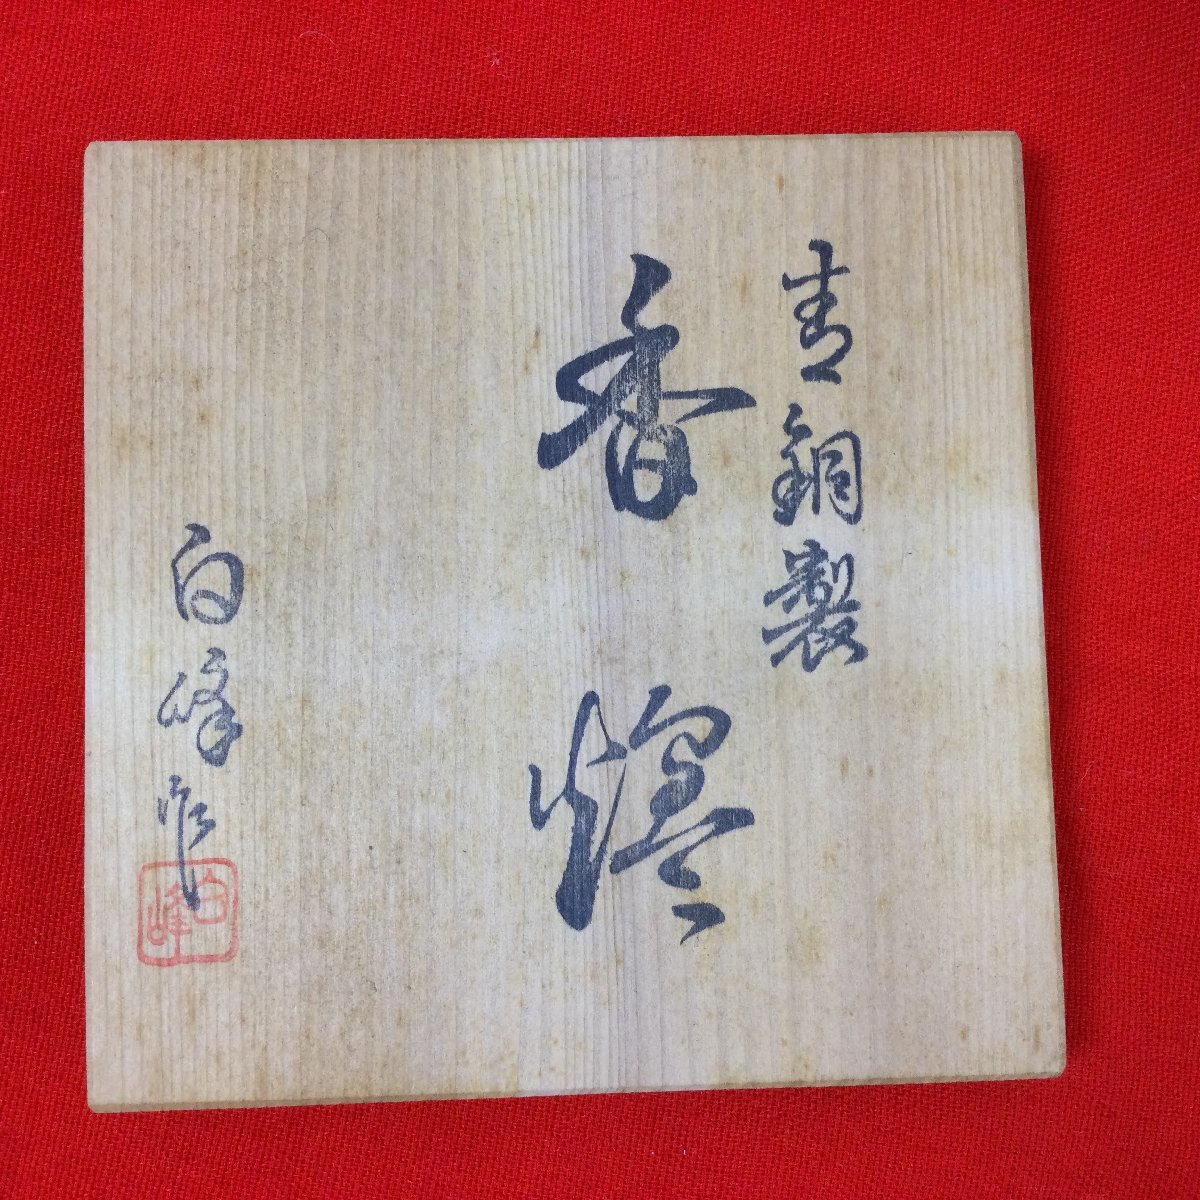 青銅製
香爐
白峰作
白峰